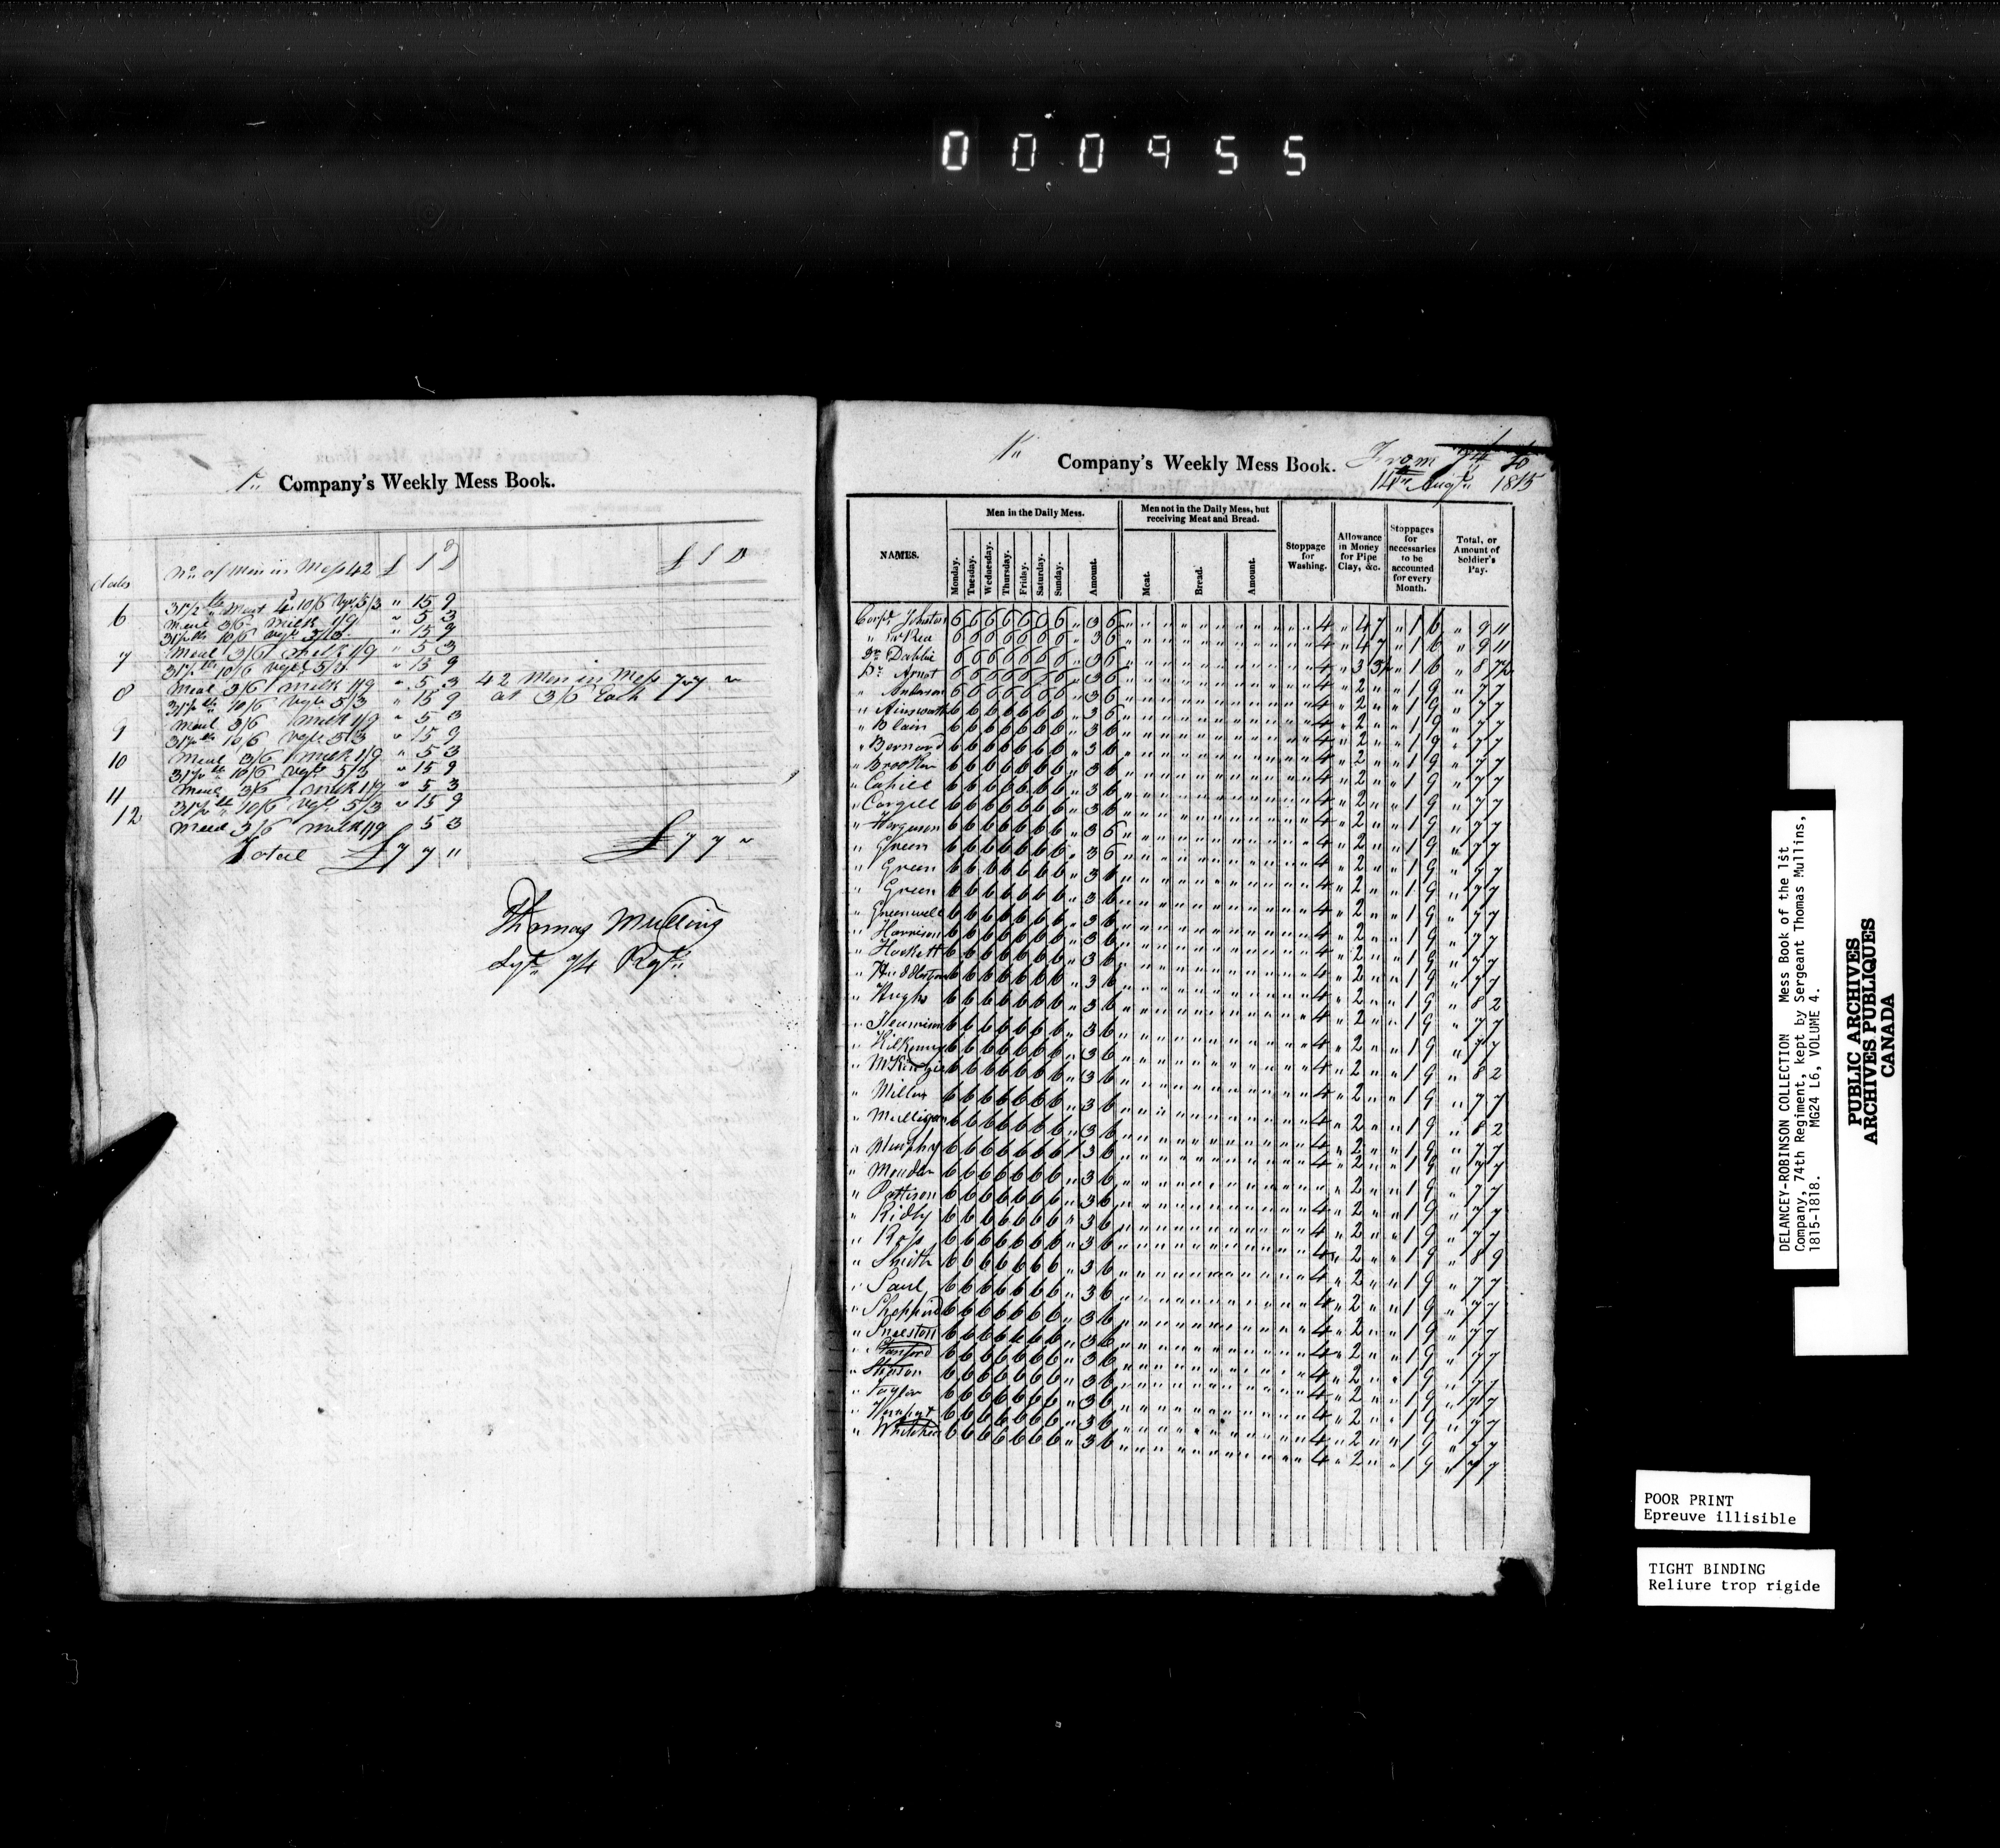 000955
1st Company's Weekly Mess Book.
dates No. of Men in Mess 42 £ S D £ S D
6 31½ lb Meat 4d 10/6 Vgt 5/3 " 15 9
Meal 3/6 Milk 1/9 " 5 3
7 31½ lb 10/6 Vgt 5/3 " 15 9
Meal 3/6 Milk 1/9 " 5 3
8 31½ lb 10/6 Vgt 5/3 " 15 9
Meal 3/6 Milk 1/9 " 5 3 42 Men in Mess 7 7 "
at 3/6 Each
9 31½ lb 10/6 Vgt 5/3 " 15 9
Meal 3/6 Milk 1/9 " 5 3
10 31½ lb 10/6 Vgt 5/3 " 15 9
Meal 3/6 Milk 1/9 " 5 3
11 31½ lb 10/6 Vgt 5/3 " 15 9
Meal 3/6 Milk 1/9 " 5 3
12 31½ lb 10/6 Vgt 5/3 " 15 9
Meal 3/6 Milk 1/9 5 3
Total £7 7 " £7 7 "
Thomas Mullins
Sgt 74 Rgt
1st Company's Weekly Mess Book. From
to 14th Augt 1815
NAMES.
Men in the Daily Mess.
Monday. Tuesday. Wednesday. Thursday. Friday. Saturday. Sunday. Amount.
Men not in the Daily Mess, but receiving Meat and Bread.
Meat. Bread. Amount.
Stoppage for Washing.
Allowance in Money for Pipe Clay, &c.
Stoppages for necessaries to be accounted for every Month.
Total, or Amount of Soldier's Pay.
Corpl Johnston 6 6 6 6 6 6 6 " 3 6 4 " 4 7 " 1 6 " 9 11
" McRea 6 6 6 6 6 6 6 " 3 6 4 " 4 7 " 1 6 " 9 11
Dr Dahlie 6 6 6 6 6 6 6 " 3 6 4 " 3 3½ " 1 6 " 8 7½
Pr Arnot 6 6 6 6 6 6 6 " 3 6 4 " 2 " " 1 9 " 7 7
" Anderson 6 6 6 6 6 6 6 " 3 6 4 " 2 " " 1 9 " 7 7
" Ainsworth 6 6 6 6 6 6 6 " 3 6 4 " 2 " " 1 9 " 7 7
" Blain 6 6 6 6 6 6 6 " 3 6 4 " 2 " " 1 9 " 7 7
" Bernard 6 6 6 6 6 6 6 " 3 6 4 " 2 " " 1 9 " 7 7
" 6 6 6 6 6 6 6 " 3 6 4 " 2 " " 1 9 " 7 7
" Cahill 6 6 6 6 6 6 6 " 3 6 4 " 2 " " 1 9 " 7 7
" Cargill 6 6 6 6 6 6 6 " 3 6 4 " 2 " " 1 9 " 7 7
" Ferguson 6 6 6 6 6 6 6 " 3 6 4 " 2 " " 1 9 " 7 7
" Green 6 6 6 6 6 6 6 " 3 6 4 " 2 " " 1 9 " 7 7
" Green 6 6 6 6 6 6 6 " 3 6 4 " 2 " " 1 9 " 7 7
" Green 6 6 6 6 6 6 6 " 3 6 4 " 2 " " 1 9 " 7 7
" Greenwell 6 6 6 6 6 6 6 " 3 6 4 " 2 " " 1 9 " 7 7
" Harrison 6 6 6 6 6 6 6 " 3 6 4 " 2 " " 1 9 " 7 7
" Hockett 6 6 6 6 6 6 6 " 3 6 4 " 2 " " 1 9 " 7 7
" 6 6 6 6 6 6 6 " 3 6 4 " 2 " " 1 9 " 8 2
" Hughs 6 6 6 6 6 6 6 " 3 6 4 " 2 " " 1 9 " 7 7
" 6 6 6 6 6 6 6 " 3 6 4 " 2 " " 1 9 " 7 7
" Kilkenny 6 6 6 6 6 6 6 " 3 6 4 " 2 " " 1 9 " 8 2
" McKenzie 6 6 6 6 6 6 6 " 3 6 4 " 2 " " 1 9 " 7 7
" Miller 6 6 6 6 6 6 6 " 3 6 4 " 2 " " 1 9 " 8 2
" Mulligan 6 6 6 6 6 6 6 " 3 6 4 " 2 " " 1 9 " 7 7
" Murphy 6 6 6 6 6 6 6 " 3 6 4 " 2 " " 1 9 " 7 7
" 6 6 6 6 6 6 6 " 3 6 4 " 2 " " 1 9 " 7 7
" Pattison 6 6 6 6 6 6 6 " 3 6 4 " 2 " " 1 9 " 7 7
" Ridly 6 6 6 6 6 6 6 " 3 6 4 " 2 " " 1 9 " 7 7
" Ross 6 6 6 6 6 6 6 " 3 6 4 " 2 " " 1 9 " 8 9
" Smith 6 6 6 6 6 6 6 " 3 6 4 " 2 " " 1 9 " 7 7
" Saul 6 6 6 6 6 6 6 " 3 6 4 " 2 " " 1 9 " 7 7
" Sheppard 6 6 6 6 6 6 6 " 3 6 4 " 2 " " 1 9 " 7 7
" 6 6 6 6 6 6 6 " 3 6 4 " 2 " " 1 9 " 7 7
" Stanford 6 6 6 6 6 6 6 " 3 6 4 " 2 " " 1 9 " 7 7
" 6 6 6 6 6 6 6 " 3 6 4 " 2 " " 1 9 " 7 7
" Taylor 6 6 6 6 6 6 6 " 3 6 4 " 2 " " 1 9 " 7 7
" 6 6 6 6 6 6 6 " 3 6 4 " 2 " " 1 9 " 7 7
" 6 6 6 6 6 6 6 " 3 6 4 " 2 " " 1 9 " 7 7
DELANCEY-ROBINSON COLLECTION Mess Book of the 1st
Company, 74th Regiment, kept by Sergeant Thomas Mullins,
1815-1818. MG24 L6, VOLUME 4.
PUBLIC ARCHIVES
ARCHIVES PUBLIQUES
CANADA
POOR PRINT
Epreuve illisible
TIGHT BINDING
Reliure trop rigide